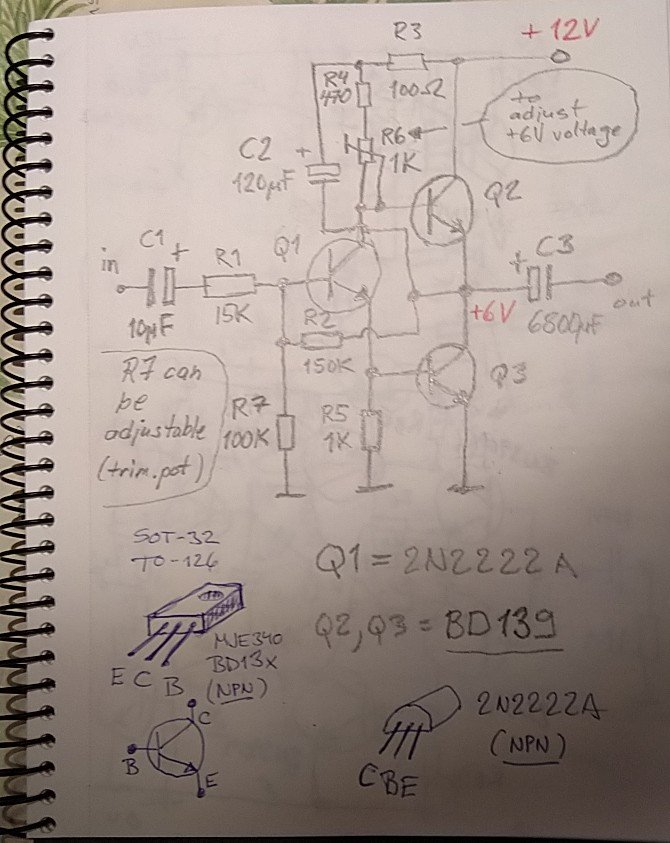 R3
+12V
R4
470
100Ω
to
adjust
+6V voltage
R6
1K
C2
+
120µF
Q2
C1
+
in
R1
Q1
+
C3
10µF
15K
R2
+6V
6800µF
out
150K
Q3
R7 can
be
adjustable
(trim.pot)
R7
100K
R5
1K
SOT-32
TO-126
Q1 = 2N2222A
Q2,Q3 = BD139
MJE340
BD13X
(NPN)
E C B
2N2222A
(NPN)
C
B
E
CBE